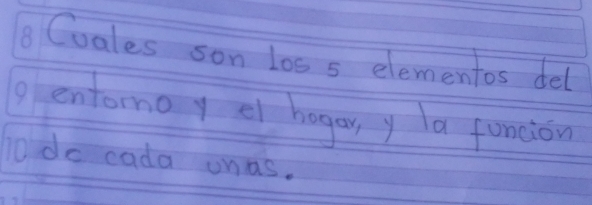 8 Cuales son los 5 elementos del
9 entorno y el hogar, y la función
10 de cada unas.